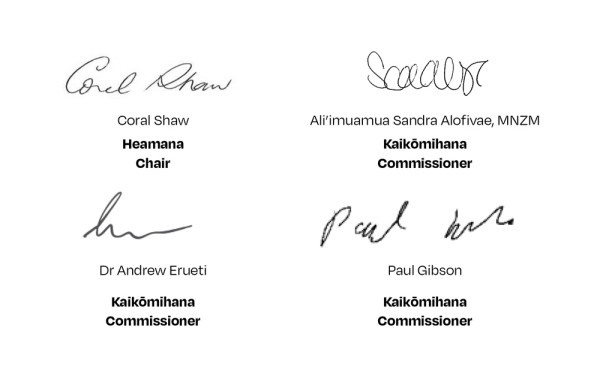 Coral Shaw
Coral Shaw
Heamana
Chair
Ali’imuamua Sandra Alofivae, MNZM
Kaikōmihana
Commissioner
Dr Andrew Erueti
Kaikōmihana
Commissioner
Paul
Paul Gibson
Kaikōmihana
Commissioner